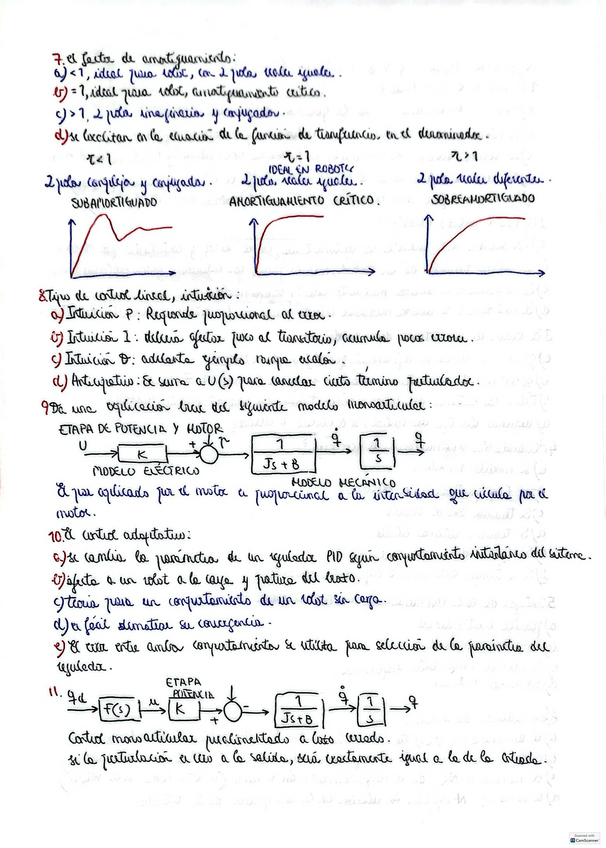 7. el factor de amortiguamiento:
a) < 1, ideal para robot, con 2 polos reales iguales.
b) = 1, ideal para robot, amortiguamiento crítico.
c) > 1, 2 polos imaginarios y conjugados.
d) se localizan en la ecuación de la función de transferencia, en el denominador.
< 1 = 1 > 1
IDEAL EN ROBOTS
2 polos complejos y conjugados. 2 polos reales iguales. 2 polos reales diferentes.
SUBAMORTIGUADO AMORTIGUAMIENTO CRÍTICO. SOBREAMORTIGUADO
8. Tipos de control lineal, intuición:
a) Intuición P: Responde proporcional al error.
b) Intuición I: debería afectar poco al transitorio, acumula pocos errores.
c) Intuición D: adelanta ejemplo rampa escalón.
d) Anticipativo: Se suma a U(s) para cancelar cierto término perturbador.
9. Da una explicación breve del siguiente modelo monoarticular:
ETAPA DE POTENCIA Y MOTOR
U K + 1 Js + B q̇ 1 s q
MODELO ELÉCTRICO MODELO MECÁNICO
El par aplicado por el motor es proporcional a la intensidad que circula por el
motor.
10. El control adaptativo:
a) se cambia los parámetros de un regulador PID según comportamiento instantáneo del sistema.
b) afecta a un robot a la carga y postura del brazo.
c) teoría para un comportamiento de un robot sin carga.
d) es fácil demostrar su convergencia.
e) El error entre ambos comportamientos se utiliza para selección de los parámetros del
regulador.
11. ETAPA
POTENCIA
qd F(s) u K + - 1 Js+B q̇ 1 s q
Control monoarticular prealimentado a lazo cerrado.
Si la perturbación es cero a la salida, será exactamente igual a la de la entrada.
Scanned with
CamScanner